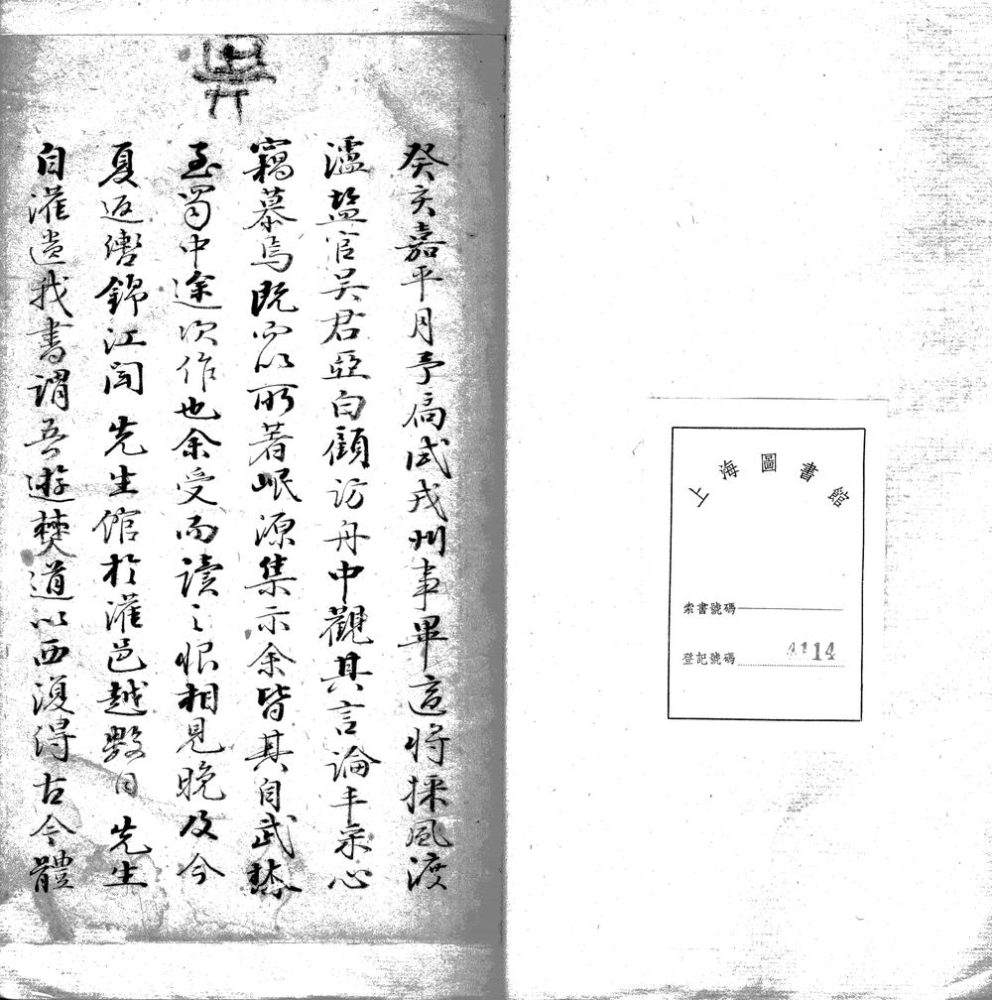 上海圖書館
索書號碼
登記號碼 114
癸亥嘉平月予偏試戎州事畢這將採風渡
瀘鹽官吳君亞白顧訪舟中觀其言論丰采心
竊慕焉既而以所著岷源集示余皆其自武林
至蜀中途次作也余受而讀之恨相見晚及今
夏返轡錦江聞先生館於灌邑越數日先生
自灌遺我書謂吾遊僰道以西復得古今體